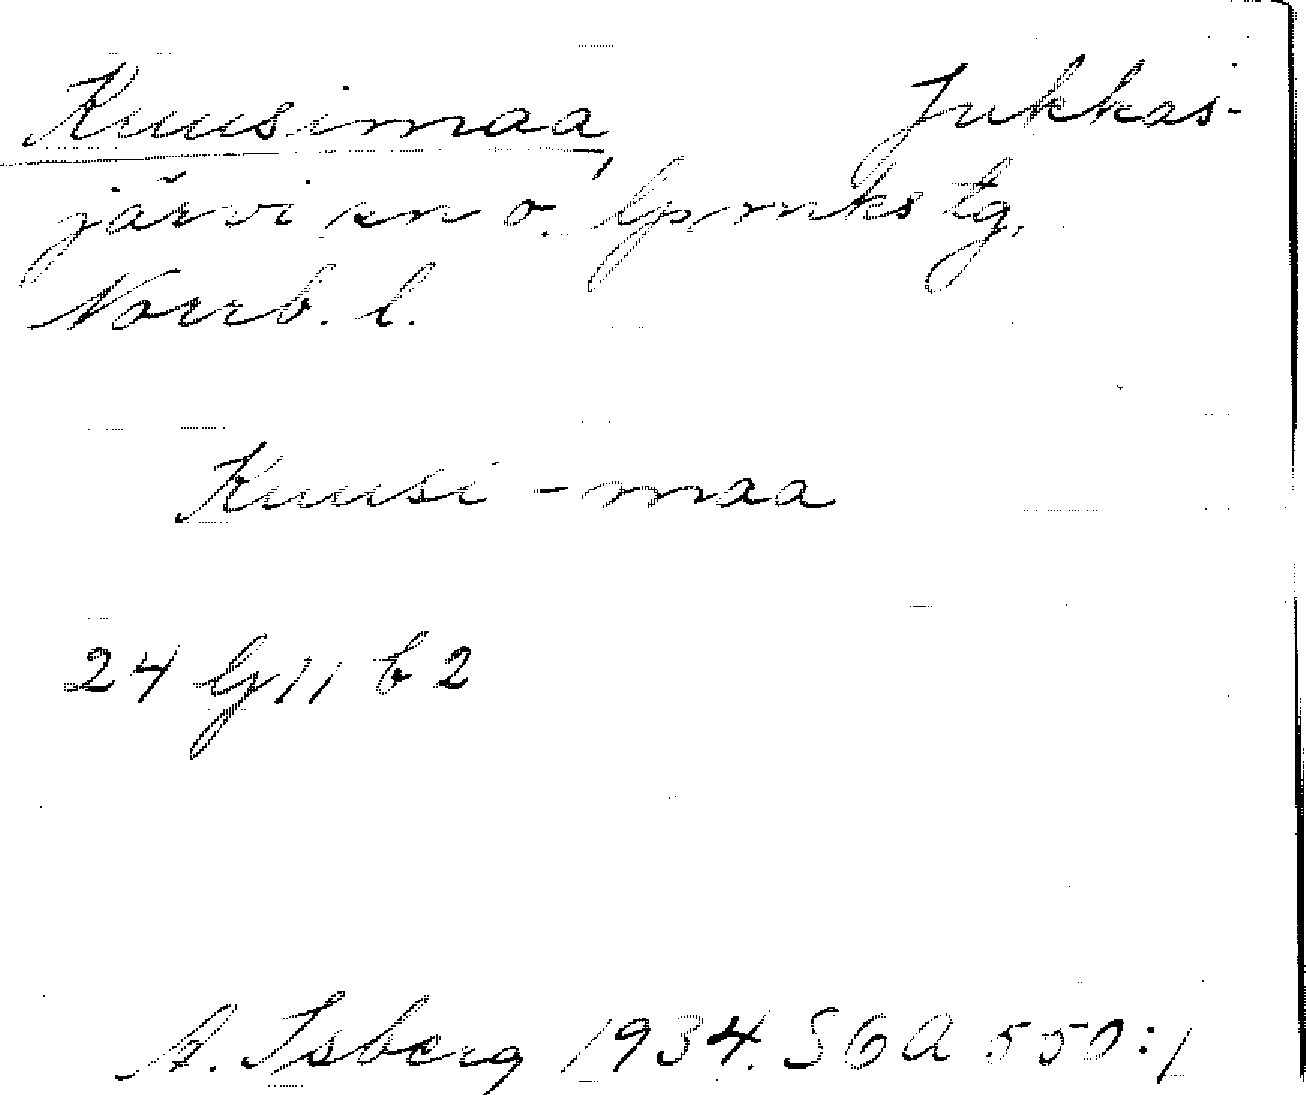 Kuusimaa, Jukkas-
järvi sn o. lpmks tg,
Norrb. l.
Kuusi - maa
24 G 11 b 2
A. Isberg 1934. SOA 550:1